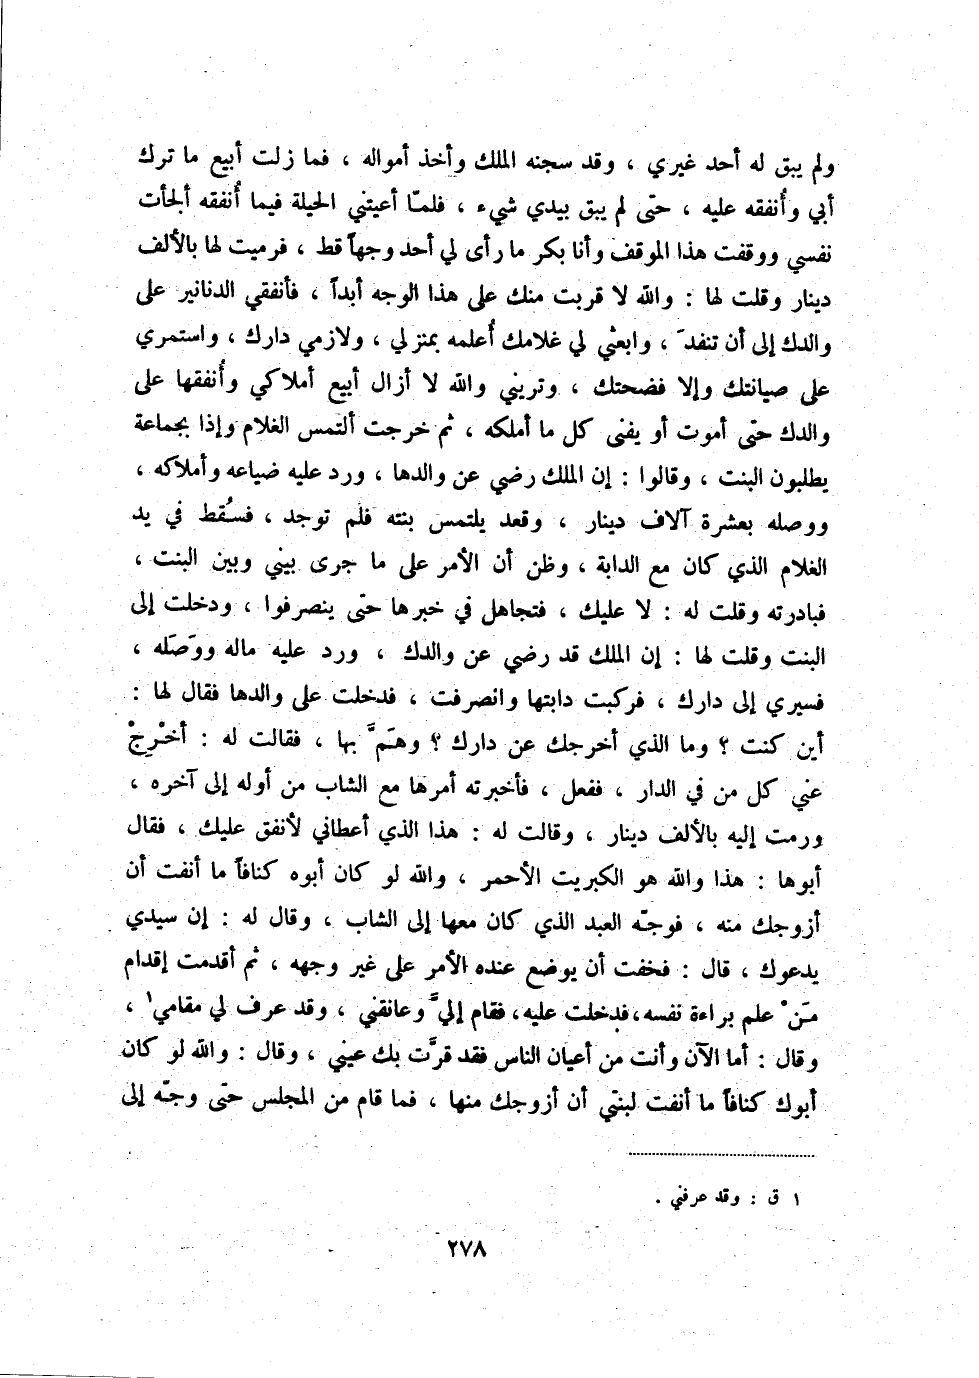 ولم يبق له أحد غيري ، وقد سجنه الملك وأخذ أمواله ، فما زلت أبيع ما ترك
أبي وأُنفقه عليه ، حتى لم يبق بيدي شيء ، فلمّا أعيتني الحيلة فيما أُنفقه ألجأت
نفسي ووقفت هذا الموقف وأنا بكر ما رأى لي أحد وجهاً قط ، فرميت لها بالألف
دينار وقلت لها : والله لا قربت منك على هذا الوجه أبداً ، فأنفقي الدنانير على
والدك إلى أن تنفدَ ، وابعثي لي غلامك أُعلمه بمنزلي ، ولازمي دارك ، واستمري
على صيانتك وإلا فضحتك ، وتريني والله لا أزال أبيع أملاكي وأُنفقها على
والدك حتى أموت أو يفنى كل ما أملكه ، ثم خرجت ألتمس الغلام وإذا بجماعة
يطلبون البنت ، وقالوا : إن الملك رضي عن والدها ، ورد عليه ضياعه وأملاكه ،
ووصله بعشرة آلاف دينار ، وقعد يلتمس بنته فلم توجد ، فسُقط في يد
الغلام الذي كان مع الدابة ، وظن أن الأمر على ما جرى بيني وبين البنت ،
فبادرته وقلت له : لا عليك ، فتجاهل في خبرها حتى ينصرفوا ، ودخلت إلى
البنت وقلت لها : إن الملك قد رضي عن والدك ، ورد عليه ماله ووَصَله ،
فسيري إلى دارك ، فركبت دابتها وانصرفت ، فدخلت على والدها فقال لها :
أين كنت ؟ وما الذي أخرجك عن دارك ؟ وهَمَّ بها ، فقالت له : أخْرِجْ
عني كل من في الدار ، ففعل ، فأخبرته أمرها مع الشاب من أوله إلى آخره ،
ورمت إليه بالألف دينار ، وقالت له : هذا الذي أعطاني لأنفق عليك ، فقال
أبوها : هذا والله هو الكبريت الأحمر ، والله لو كان أبوه كنافاً ما أنفت أن
أزوجك منه ، فوجّه العبد الذي كان معها إلى الشاب ، وقال له : إن سيدي
يدعوك ، قال : فخفت أن يوضع عنده الأمر على غير وجهه ، ثم أقدمت إقدام
مَنْ علم براءة نفسه، فدخلت عليه، فقام إليَّ وعانقني ، وقد عرف لي مقامي١ ،
وقال : أما الآن وأنت من أعيان الناس فقد قرَّت بك عيني ، وقال : والله لو كان
أبوك كنافاً ما أنفت لبنتي أن أزوجك منها ، فما قام من المجلس حتى وجّه إلى
١ ق : وقد عرفني .
٢٧٨